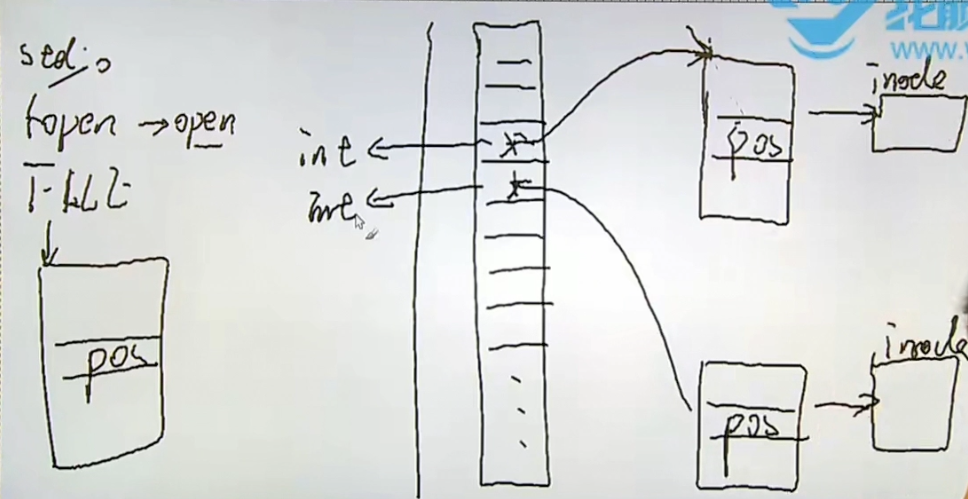 stdio
fopen → open
FILE
pos
int
int
*
*
pos
inode
pos
inode
www.